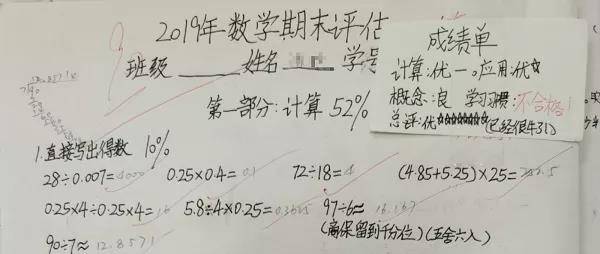 2019年数学期末评估
班级____姓名____学号
第一部分:计算 52%
成绩单
计算:优一。应用:优☆
概念:良 学习习惯:不合格!
总评:优☆☆☆☆☆☆☆(已经很牛31)
1.直接写出得数 10%
28÷0.007=4000 0.25×0.4=0.1 72÷18=4 (4.85+5.25)×25=252.5
0.25×4÷0.25×4=16 5.8÷4×0.25=0.3625 97÷6≈16.167
(需保留到千分位)(五舍六入)
90÷7≈12.8571